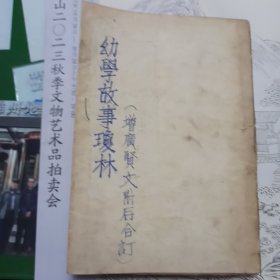 幼學故事瓊林
(增廣賢文附后合訂)
山二〇二三秋季文物艺术品拍卖会